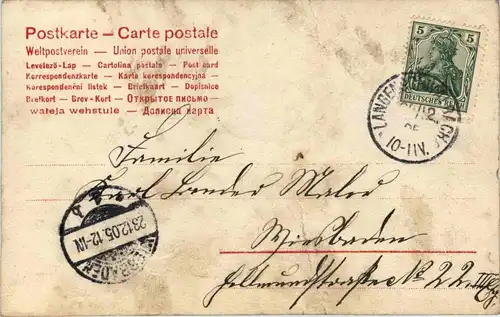 Postkarte — Carte postale
Weltpostverein — Union postale universelle
Levelező-Lap — Cartolina postale — Post card
Korrespondenzkarte — Karta korespondencyjna —
Korespondenční lístek — Briefkaart — Dopisnice
Brefkort — Grev-Kort — Открытое письмо —
wateja wehstule — Дописна карта
5 5
DEUTSCHES
LANGEN
12
05
10-11V.
Familie
Karl Lander
Wiesbaden
Hellmundstraße No 22
WIESBADEN
23.12.05.12-1N